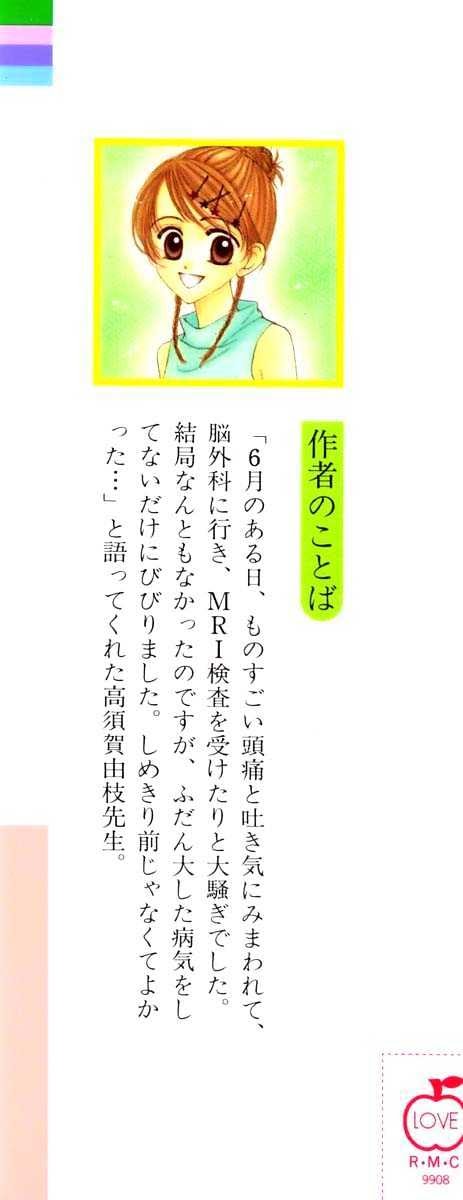 作者のことば
「6月のある日、ものすごい頭痛と吐き気にみまわれて、
脳外科に行き、MRI検査を受けたりと大騒ぎでした。
結局なんともなかったのですが、ふだん大した病気をし
てないだけにびびりました。しめきり前じゃなくてよか
った…」と語ってくれた高須賀由枝先生。
LOVE
R・M・C
9908